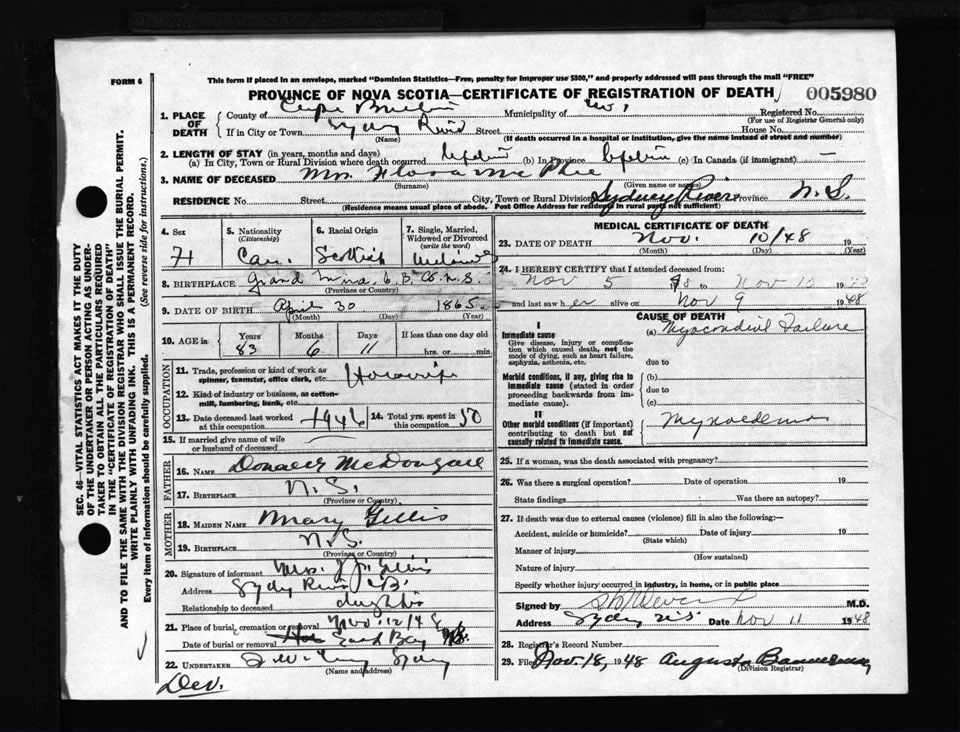 FORM 6
This form if placed in an envelope, marked "Dominion Statistics—Free, penalty for improper use $300," and properly addressed will pass through the mail "FREE"
PROVINCE OF NOVA SCOTIA—CERTIFICATE OF REGISTRATION OF DEATH
005980
1. PLACE OF DEATH
County of Cape Breton Municipality of Registered No.
(For use of Registrar General only)
If in City or Town Sydney River Street House No.
(Name) (If death occurred in a hospital or institution, give the name instead of street and number)
2. LENGTH OF STAY (in years, months and days)
(a) In City, Town or Rural Division where death occurred Lifetime (b) In Province Lifetime (c) In Canada (if immigrant) —
3. NAME OF DECEASED Mrs. Flora McPhee
(Surname) (Given name or names)
RESIDENCE No. Street City, Town or Rural Division Sydney River Province N.S.
(Residence means usual place of abode. Post Office Address for residents in rural parts not sufficient)
4. Sex
5. Nationality (Citizenship) Can.
6. Racial Origin Scottish
7. Single, Married, Widowed or Divorced (write the word) Widow
8. BIRTHPLACE Grand Mira, C.B. Co. N.S.
(Province or Country)
9. DATE OF BIRTH April 30 1865
(Month) (Day) (Year)
10. AGE in Years 83 Months 6 Days 11 If less than one day old hrs. or min.
OCCUPATION
11. Trade, profession or kind of work as spinner, teamster, office clerk, etc. Housewife
12. Kind of industry or business, as cotton-mill, lumbering, bank, etc.
13. Date deceased last worked at this occupation 1946
14. Total yrs. spent in this occupation 50
15. If married give name of wife or husband of deceased
FATHER
16. NAME Donald McDougall
17. BIRTHPLACE N.S.
(Province or Country)
MOTHER
18. MAIDEN NAME Mary Gillis
19. BIRTHPLACE N.S.
(Province or Country)
20. Signature of informant Mrs.
Address Sydney River C.B.
Relationship to deceased daughter
21. Place of burial, cremation or removal Nov. 12/48
Date of burial or removal East Bay N.S.
22. UNDERTAKER Sydney
(Name and address)
Dev.
MEDICAL CERTIFICATE OF DEATH
23. DATE OF DEATH Nov. 10/48 19
(Month) (Day) (Year)
24. I HEREBY CERTIFY that I attended deceased from:
Nov 5 to Nov 10 19
and last saw her alive on Nov 9 1948
CAUSE OF DEATH
I
Immediate cause
Give disease, injury or complication which caused death, not the mode of dying, such as heart failure, asphyxia, asthenia, etc.
(a) Myocardial Failure
due to
Morbid conditions, if any, giving rise to immediate cause (stated in order proceeding backwards from immediate cause).
(b)
due to
(c)
II
Other morbid conditions (if important) contributing to death but not causally related to immediate cause.
Myxoedema
25. If a woman, was the death associated with pregnancy?
26. Was there a surgical operation? Date of operation 19
State findings Was there an autopsy?
27. If death was due to external causes (violence) fill in also the following:—
Accident, suicide or homicide? Date of injury 19
(State which)
Manner of injury
(How sustained)
Nature of injury
Specify whether injury occurred in industry, in home, or in public place
Signed by M.D.
Address Sydney N.S. Date Nov 11 1948
28. Registrar's Record Number
29. Filed Nov. 18, 1948 Augusta Bannerman
(Division Registrar)
SEC. 46—VITAL STATISTICS ACT MAKES IT THE DUTY
OF THE UNDERTAKER OR PERSON ACTING AS UNDER-
TAKER TO OBTAIN ALL THE PARTICULARS REQUIRED
IN THE "CERTIFICATE OF REGISTRATION OF DEATH"
AND TO FILE THE SAME WITH THE DIVISION REGISTRAR WHO SHALL ISSUE THE BURIAL PERMIT.
WRITE PLAINLY WITH UNFADING INK. THIS IS A PERMANENT RECORD.
Every item of information should be carefully supplied. (See reverse side for instructions.)